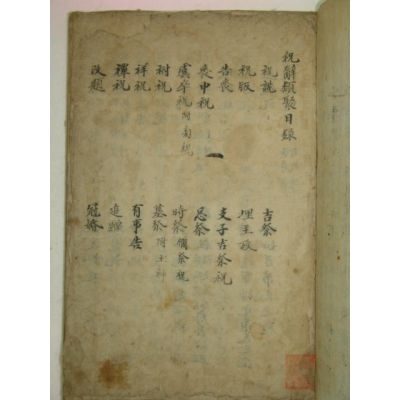 祝辭類聚目錄
祝說
祝版
告喪
喪中祝
虞卒祝附自祝
祔祝
祥祝
禫祝
改題
吉祭
埋主放
支子吉祭祝
忌祭
時祭禰祭祝
墓祭附土神
有事告
追贈
冠婚